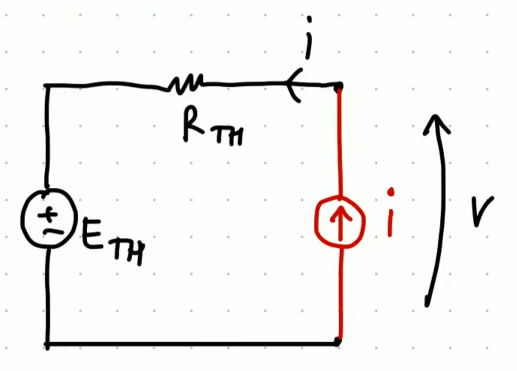 i
R TH
+
−
E TH
i
v